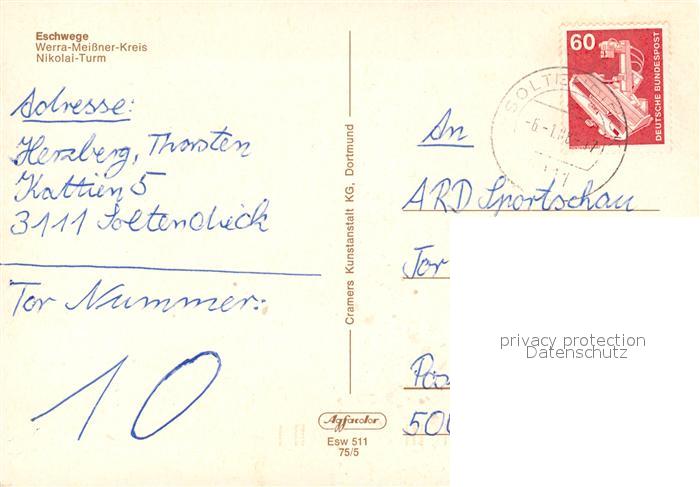 Eschwege
Werra-Meißner-Kreis
Nikolai-Turm
Adresse:
Herzberg, Thorsten
Kattien 5
3111 Soltendieck
Tor Nummer:
10
Cramers Kunstanstalt KG, Dortmund
Agfacolor
Esw 511
75/5
60
DEUTSCHE BUNDESPOST
An
ARD Sportschau
Tor
privacy protection
Datenschutz